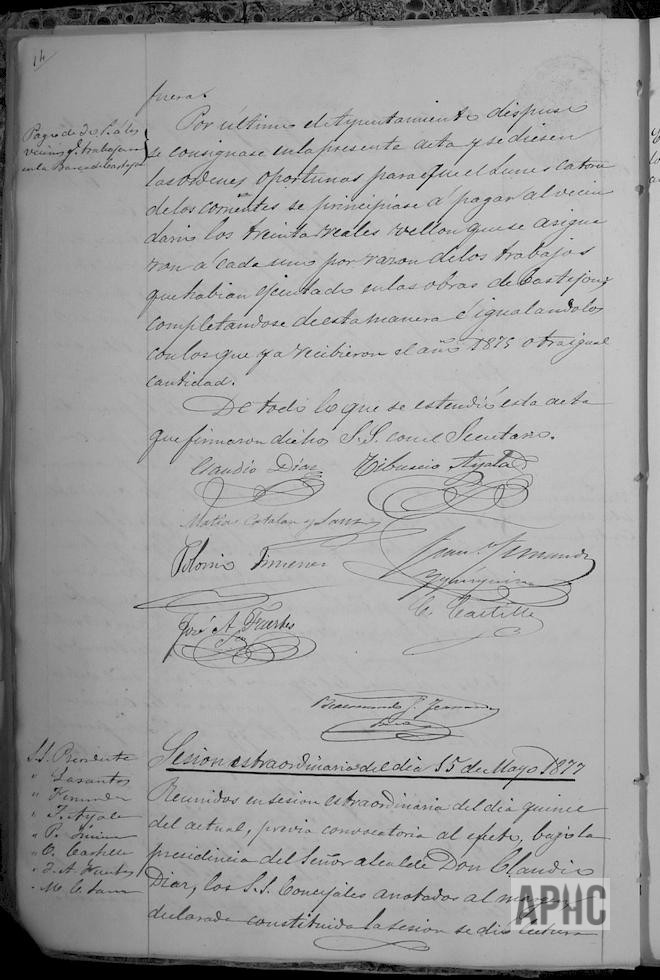 14
fuera.
Pago de 30 R. á los
vecinos q. trabajaron
en la Barca de Castejon
Por último el Ayuntamiento dispuso
se consignase en la presente acta y se diesen
las ordenes oportunas para que el Lunes catorce
de los corrientes se principiase á pagar al vecin
dario los treinta reales vellon que se asigna
ron á cada uno por razon de los trabajos
que habian ejecutado en las obras de Castejon,
completandose de esta manera é igualandolos
con los que ya recibieron el año 1875 otra igual
cantidad.
De todo lo que se estendió esta acta
que firmaron dichos S.S. con el Secretario.
Claudio Díaz Tiburcio Ayala
Matías Catalan y Sanz
Polonio Jimenez
Juan Fernandez
C. Castillo
José A. Fuertes
S.S. Presidente
" Lasantas
" Fernandez
" T. Ayala
" P. Jimenez
" C. Castillo
" J. A. Fuertes
" M. C. Sanz
Sesion estraordinaria del dia 15 de Mayo 1877
Reunidos en sesion estraordinaria del dia quince
del actual, previa convocatoria al efecto, bajo la
presidencia del Señor alcalde Don Claudio
Diaz, los S.S. Concejales anotados al margen
declarada constituida la sesion se dio lectura
APHC